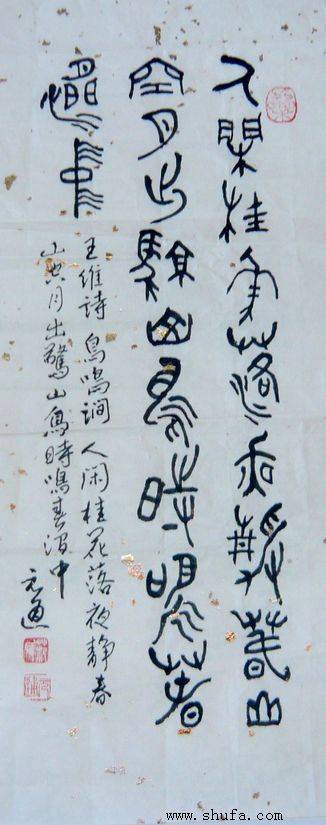 人閑桂花落夜靜春山
空月出驚山鳥時鳴春
澗中
王維詩 鳥鳴澗 人闲桂花落夜靜春
山空月出驚山鳥時鳴春澗中
www.shufa.com